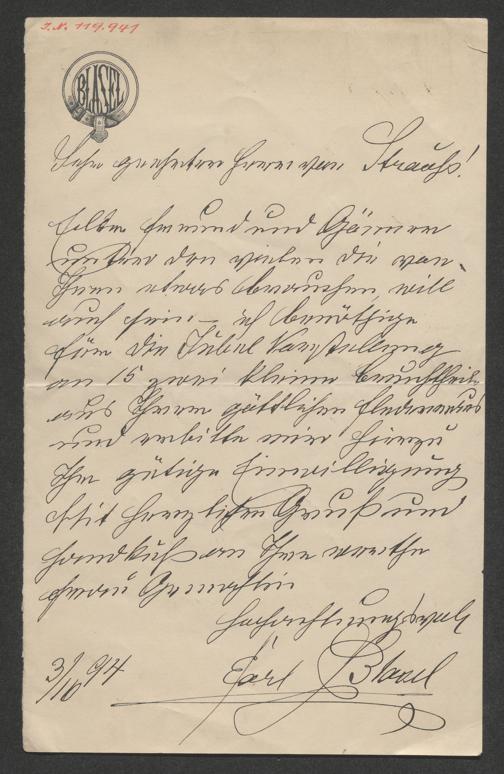 I.N. 119.941
BLASEL
Sehr geehrter Herr von Strauss!
Edler Freund und Gönner
unter den vielen die von
Ihnen etwas brauchen will
auch sein – ich benöthige
für die Jubel Vorstellung
an 15 zwei kleine Bruchtheile
aus Ihrer göttlichen Fledermaus
und erbitte mir hierzu
Ihre gütige Einwilligung
Mit herzlichen Gruß und
Handkuß an Ihre werthe
Frau Gemahlin
Hochachtungsvoll
3/10 94 Carl Blasel